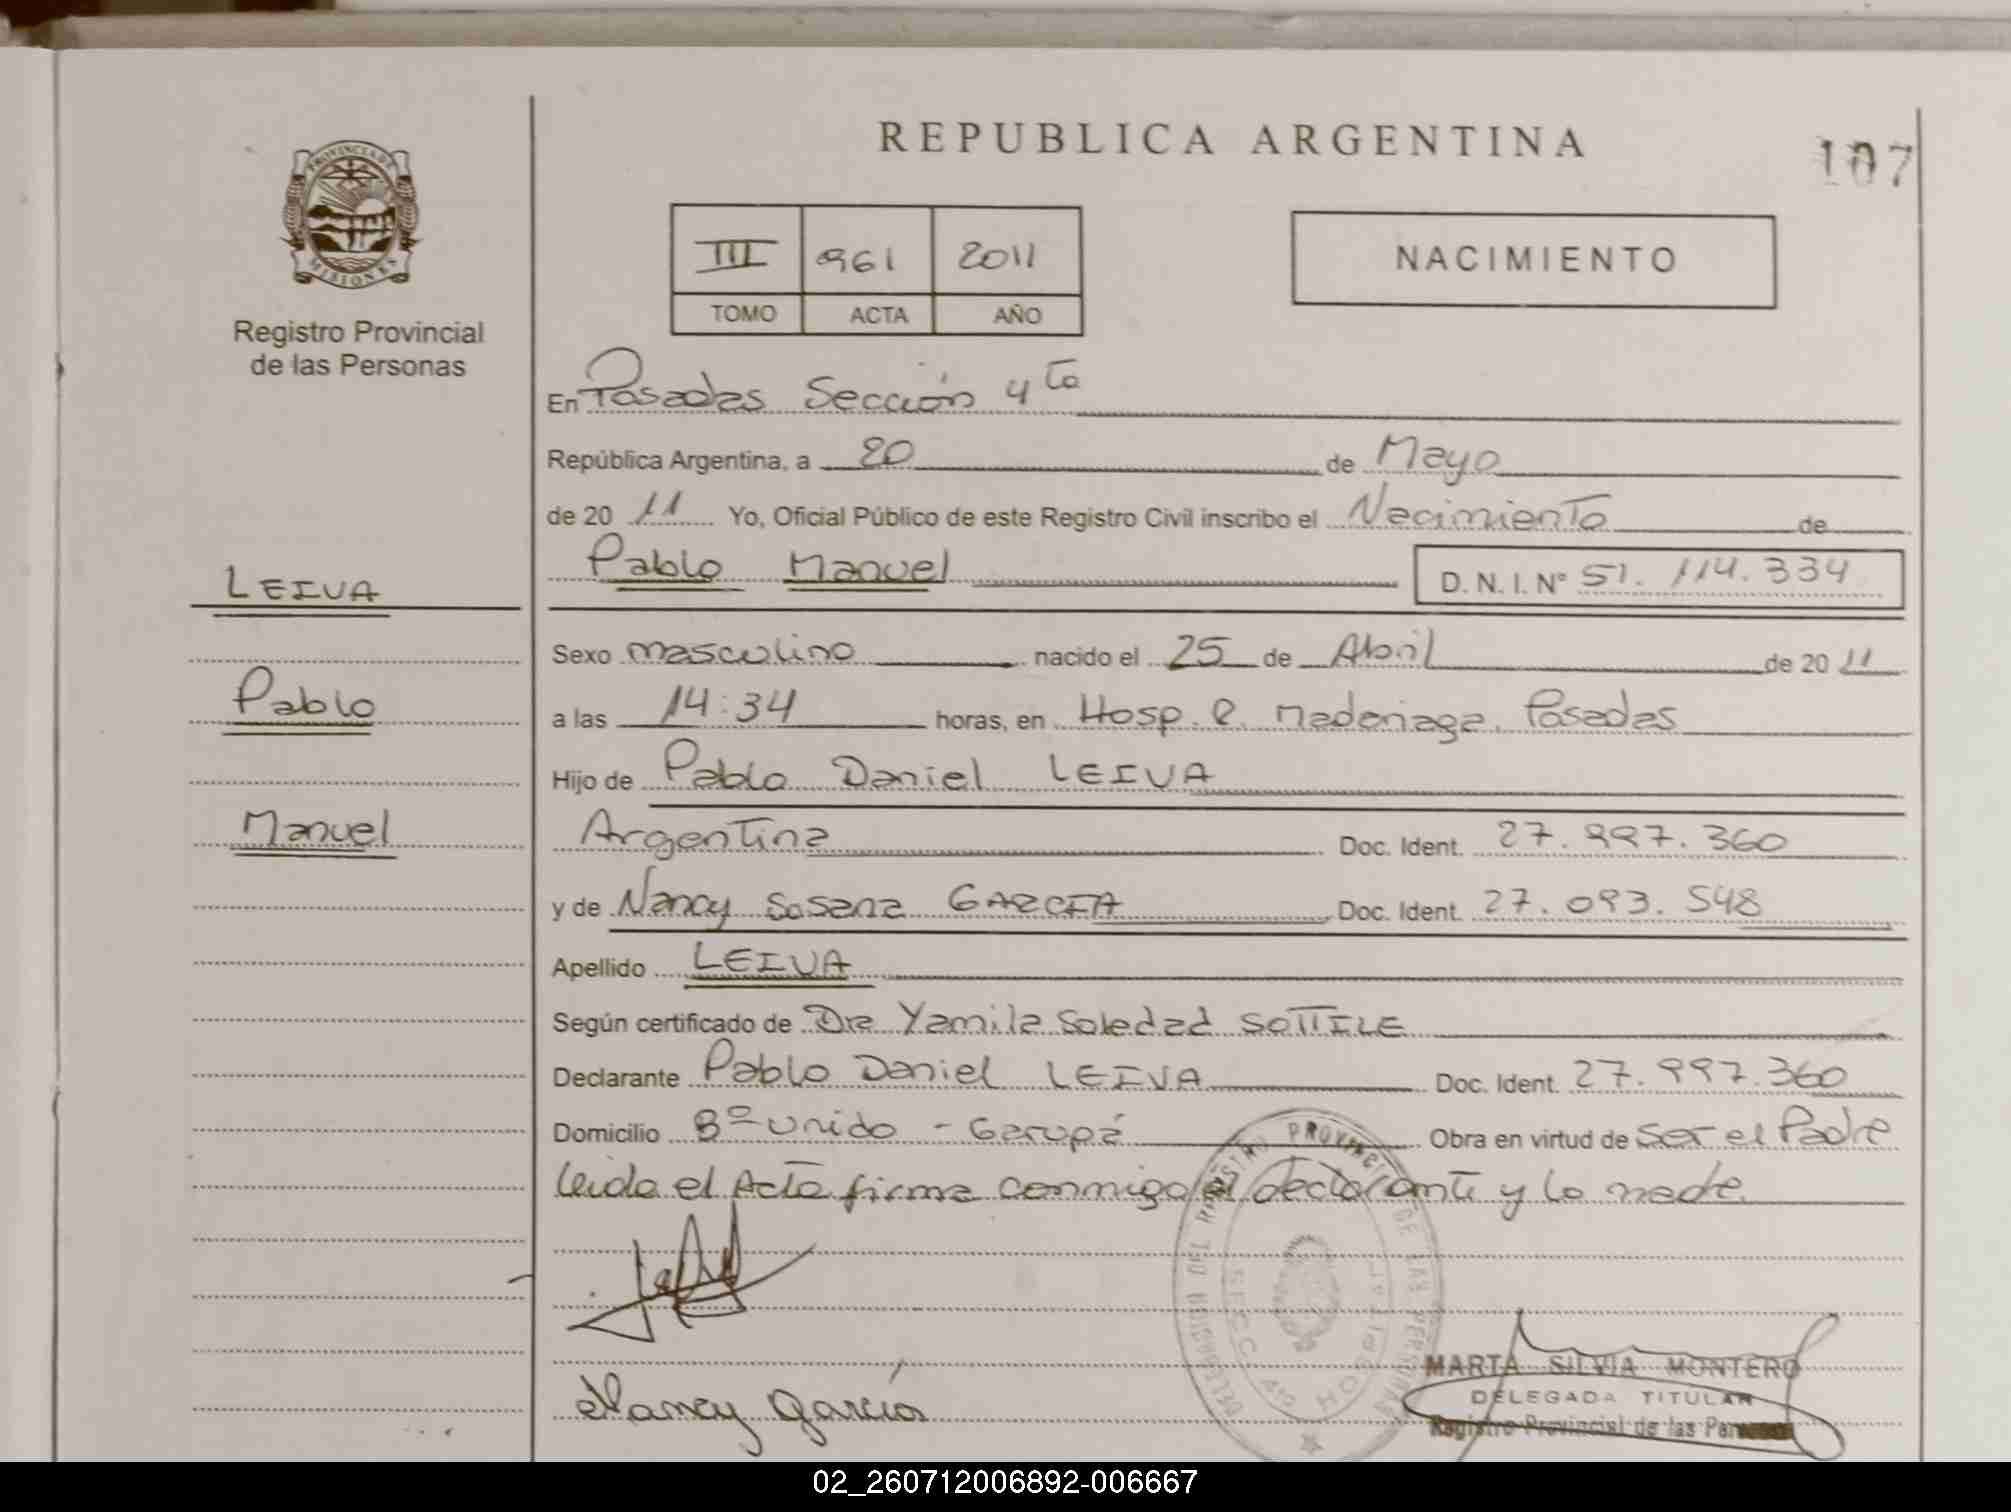 REPUBLICA ARGENTINA
107
PROVINCIA DE
MISIONES
Registro Provincial
de las Personas
III 961 2011
TOMO ACTA AÑO
NACIMIENTO
En Posadas Sección 4ta
República Argentina, a 20 de Mayo
de 20 11 Yo, Oficial Público de este Registro Civil inscribo el Nacimiento de
Pablo Manuel D. N. I. Nº 51.114.334
LEIVA
Pablo
Manuel
Sexo masculino nacido el 25 de Abril de 20 11
a las 14:34 horas, en Hosp. R. Madariaga. Posadas
Hijo de Pablo Daniel LEIVA
Argentina Doc. Ident. 27.997.360
y de Nancy Susana GARCIA Doc. Ident. 27.093.548
Apellido LEIVA
Según certificado de Dra Yamila Soledad SOTTILE
Declarante Pablo Daniel LEIVA Doc. Ident. 27.997.360
Domicilio Bº Unido - Garupá Obra en virtud de Ser el Padre
leída el Acta firma conmigo el declarante y la madre
Nancy García
DELEGACION DEL REGISTRO PROVINCIAL DE LAS PERSONAS
SECC. 4ta HOSPITAL
MARTA SILVIA MONTERO
DELEGADA TITULAR
Registro Provincial de las Personas
02_260712006892-006667